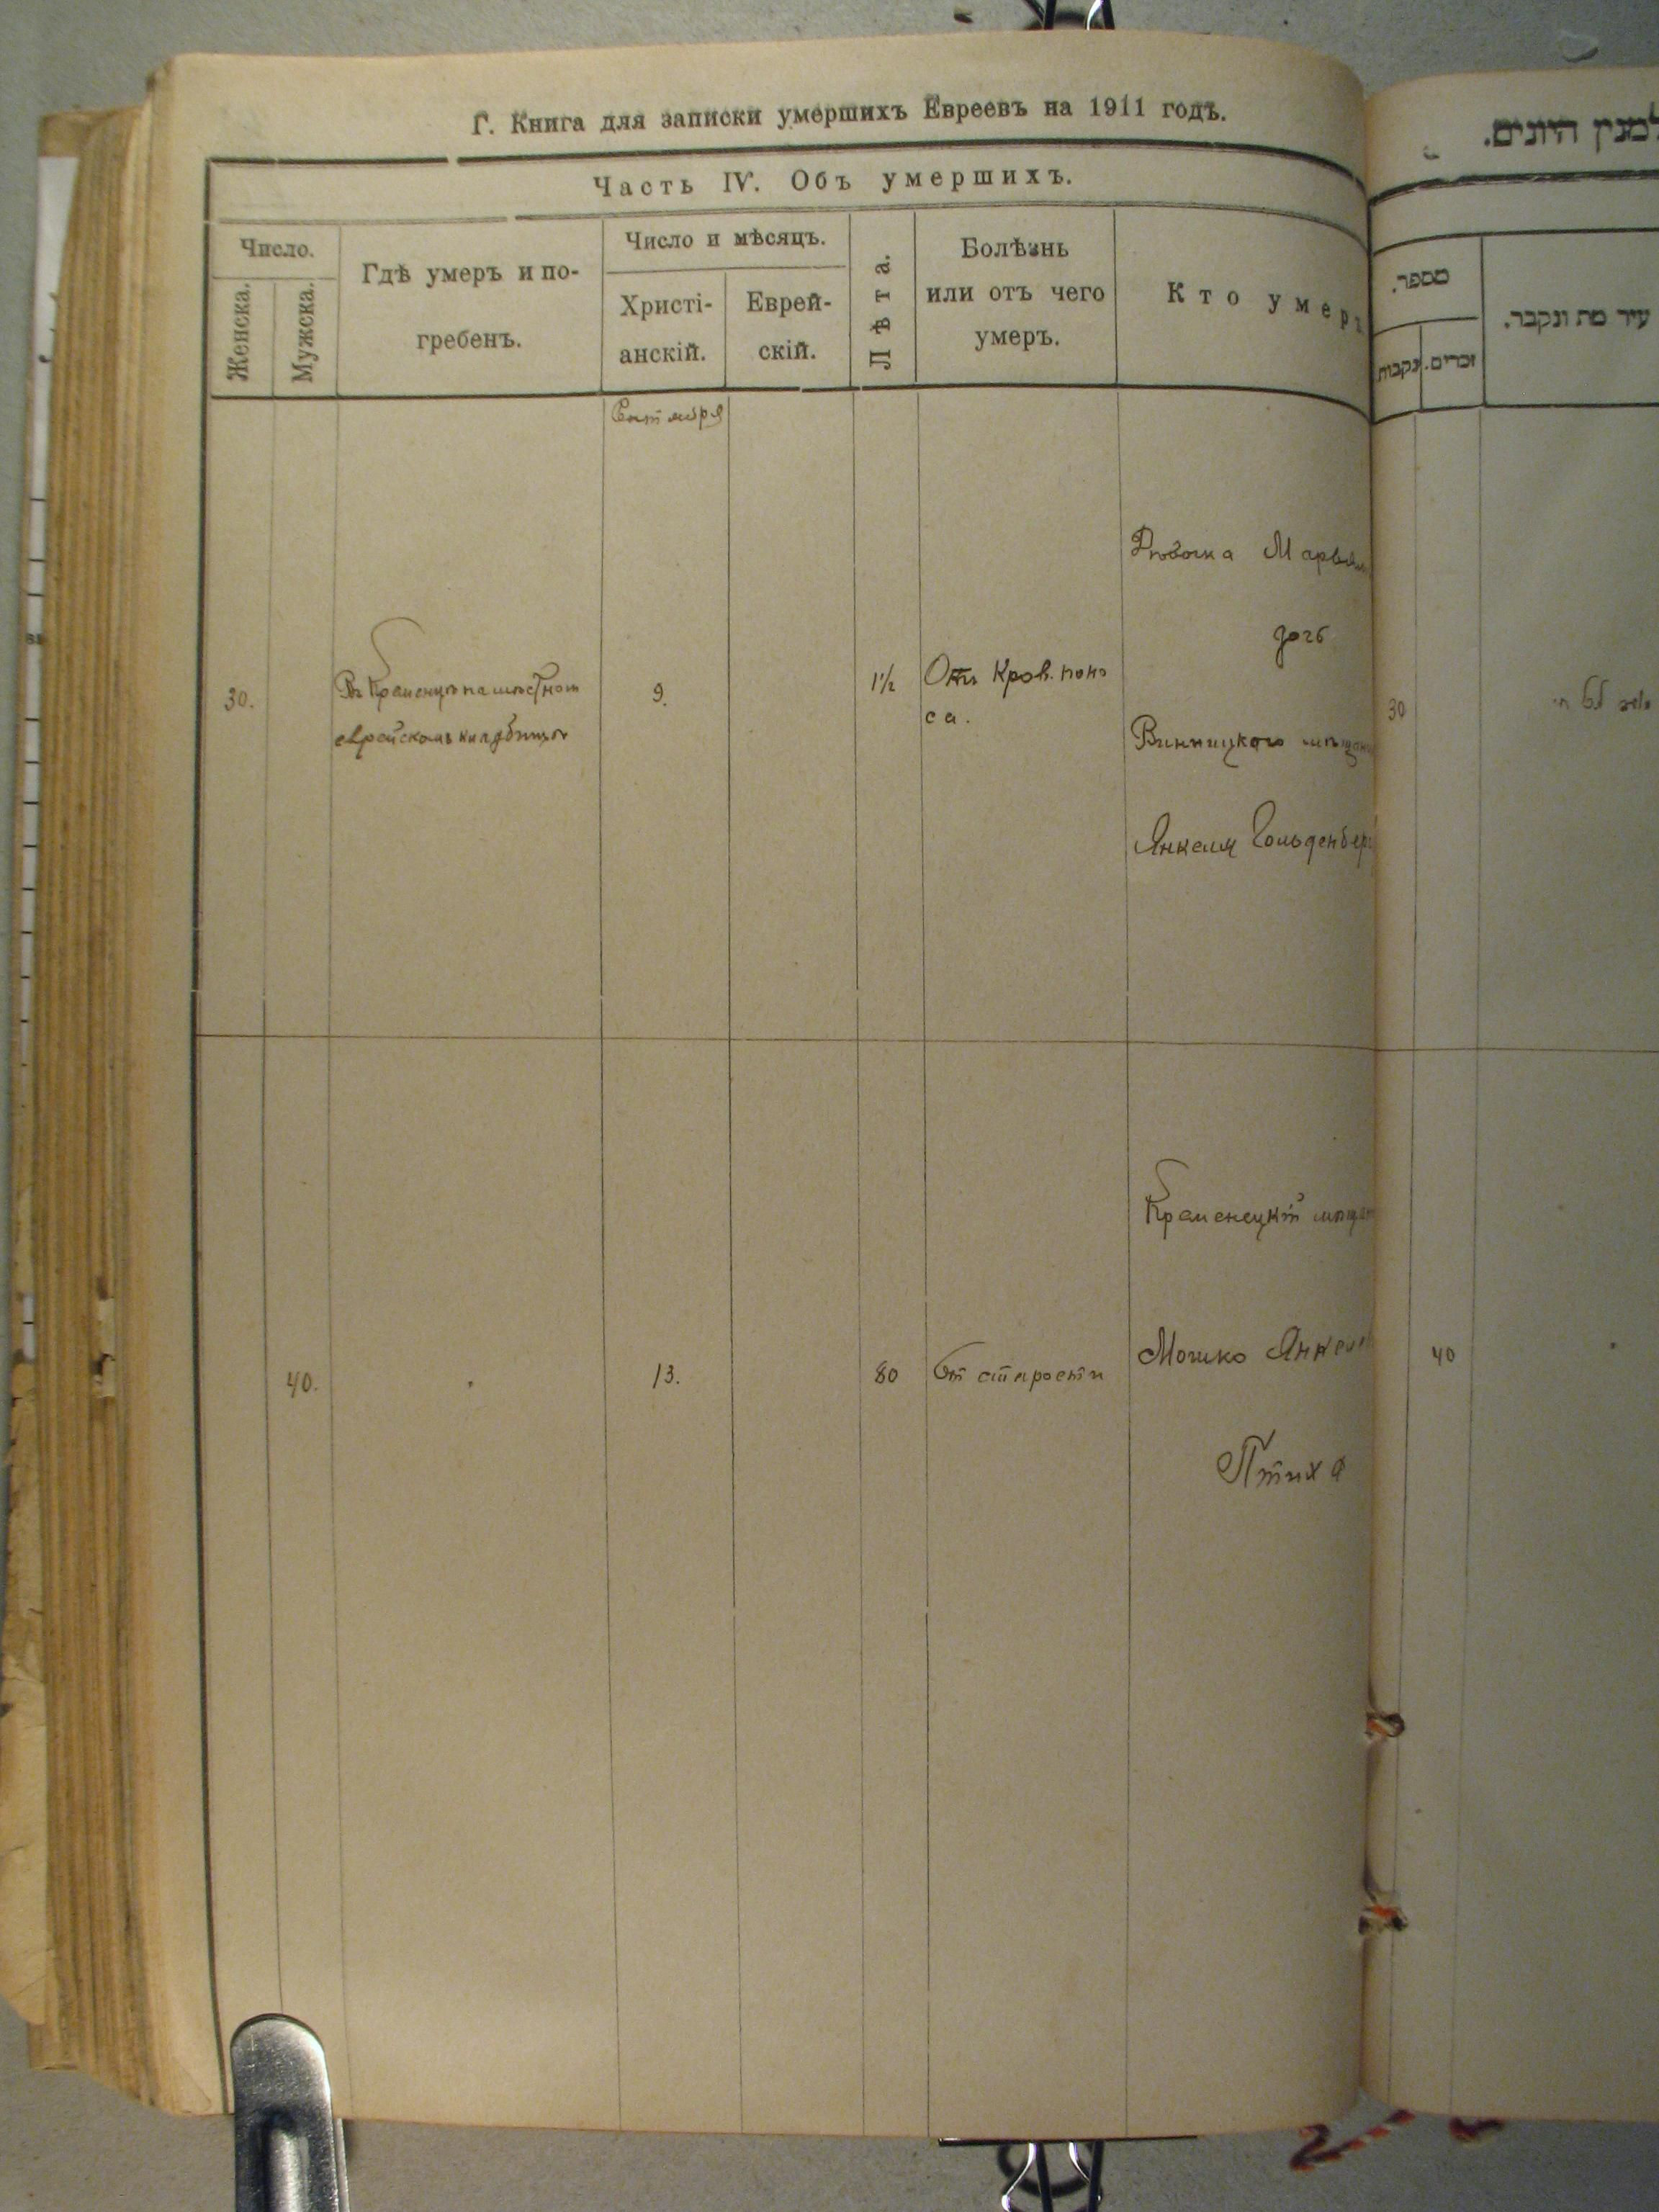 Г. Книга для записки умершихъ Евреевъ на 1911 годъ.
Часть IV. Объ умершихъ.
Число.
Женска.
Мужска.
Гдѣ умеръ и по-
гребенъ.
Число и мѣсяцъ.
Христі-
анскій.
Еврей-
скій.
Лѣта.
Болѣзнь
или отъ чего
умеръ.
Кто умеръ
Сентября
30.
Въ Кременцѣ на мѣстном
еврейскомъ кладбищѣ
9.
1½
Отъ Кров. поно
са.
Дѣвочка
дочь
Винницкого мѣщан
Янкеля Гольденберг
40.
13.
80
От старости
Кременецкій мѣщан
Мошко Янкел
Птиха
למנין היונים.
מספר.
נקבות
זכרים.
עיר מת ונקבר.
30
40